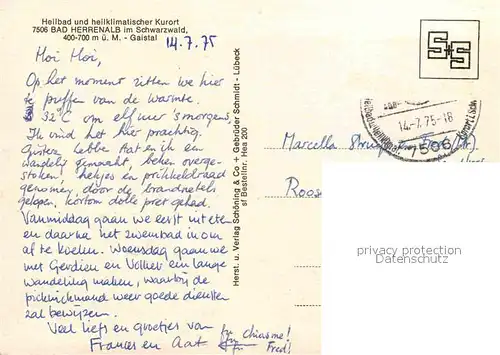 Heilbad und heilklimatischer Kurort
7506 BAD HERRENALB im Schwarzwald,
400-700 m ü. M. - Gaistal
14.7.75
Hoi Hoi,
Op het moment zitten we hier
te puffen van de warmte.
32°C om elf uur 's morgens.
Ik vind het hier prachtig.
Gisteren hebben Aat en ik een
wandeling gemaakt, beken overge-
stoken, hekjes en prikkeldraad
genomen, door de brandnetels
gelopen, kortom dolle pret gehad.
Vanmiddag gaan we eerst uit eten
en daarna het zwembad in om
af te koelen. Woensdag gaan we
met Gerdien en Volkert een lange
wandeling maken, waarbij de
picknickmand weer goede diensten
zal bewijzen.
Veel liefs en groetjes van
Frances en Aat
Chiasme!
Fred!
Herst. u. Verlag Schöning & Co + Gebrüder Schmidt - Lübeck
sf Bestellnr. Hea 200
S+S
14.-7.75-18
7506
Marcella
Roos
privacy protection
Datenschutz